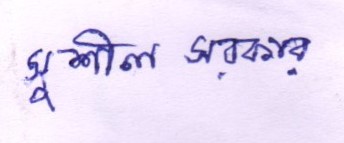 সুশীল সরকার